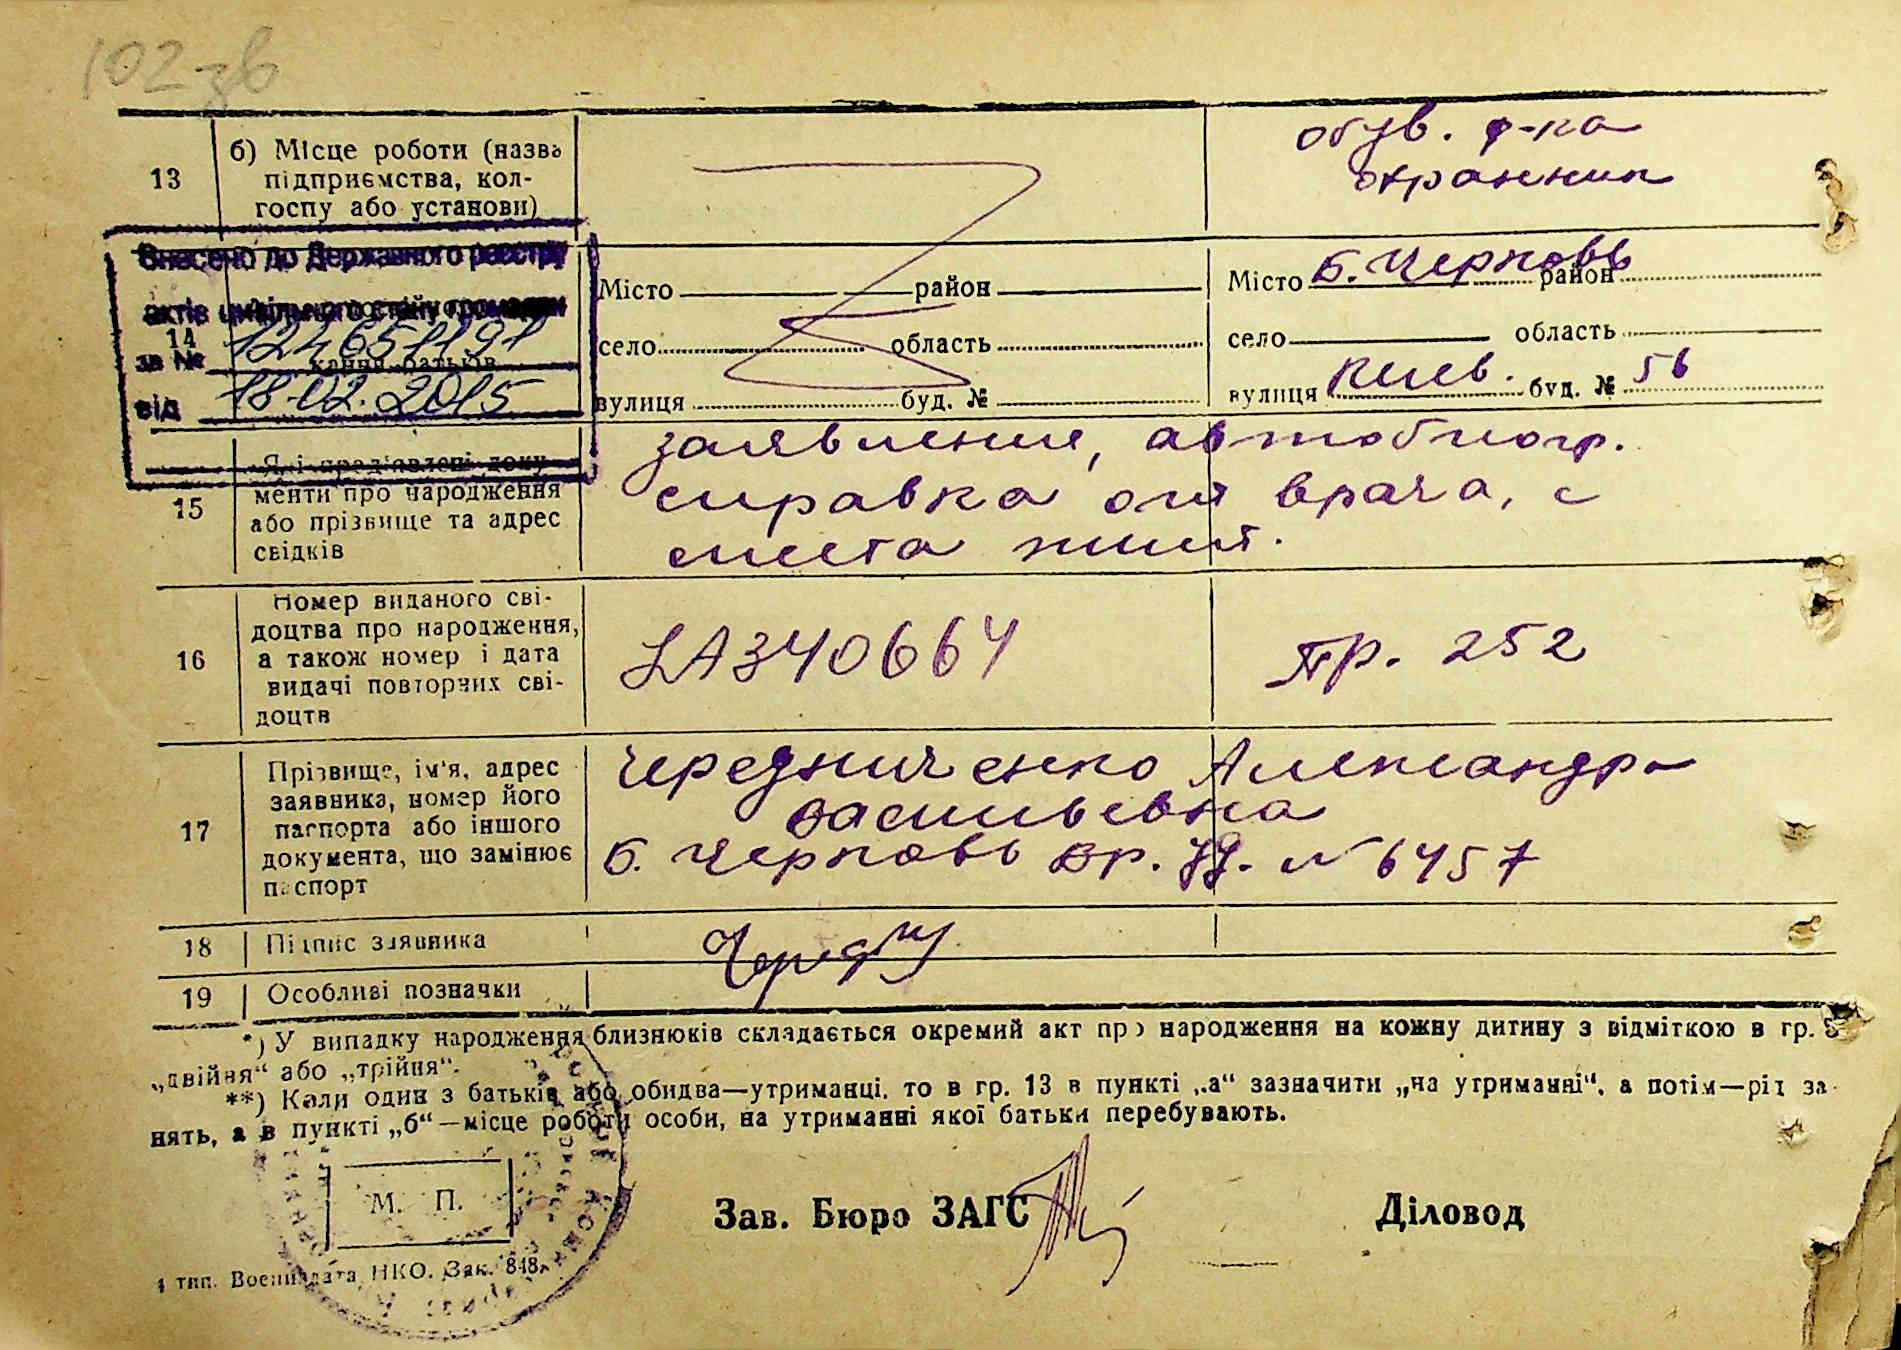 102 зв
13
б) Місце роботи (назва
підприємства, кол-
госпу або установи)
обув. ф-ка
охранник
Внесено до Державного реєстру
актів цивільного стану громадян
за № 124651191
від 18.02.2015
14
кання батьків
Місто район
село область
вулиця буд. №
Місто Б. Церковь район
село область
вулиця Киев. буд. № 56
15
Які пред'явлені доку-
менти про народження
або прізвище та адрес
свідків
заявление, автобиогр.
справка от врача, с
места жит.
16
Номер виданого сві-
доцтва про народження,
а також номер і дата
видачі повторних сві-
доцтв
ЦА340664
Пр. 252
17
Прізвище, ім'я, адрес
заявника, номер його
паспорта або іншого
документа, що замінює
паспорт
Чередниченко Александра
Васильевна
Б. Церковь вр. уд. № 6457
18
Підпис заявника
19
Особливі позначки
*) У випадку народження близнюків складається окремий акт про народження на кожну дитину з відміткою в гр. 5
„двійня“ або „трійня“.
**) Коли один з батьків або обидва—утриманці, то в гр. 13 в пункті „а“ зазначити „на утриманні“, а потім—рід за-
нять, а в пункті „б“—місце роботи особи, на утриманні якої батьки перебувають.
М. П.
Зав. Бюро ЗАГС
Діловод
тип. Воениздата НКО. Зак. 848